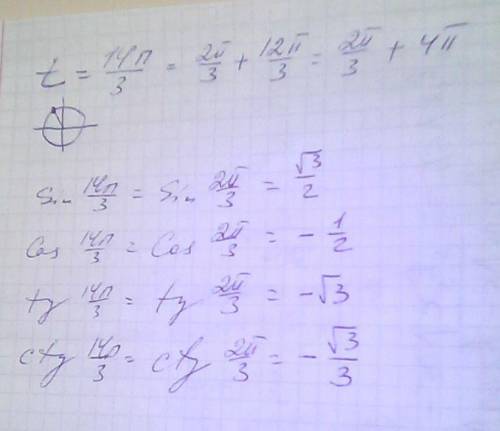 t = 14π/3 = 2π/3 + 12π/3 = 2π/3 + 4π
Sin 14π/3 = Sin 2π/3 = √3/2
Cos 14π/3 = Cos 2π/3 = - 1/2
tg 14π/3 = tg 2π/3 = -√3
ctg 14π/3 = ctg 2π/3 = - √3/3